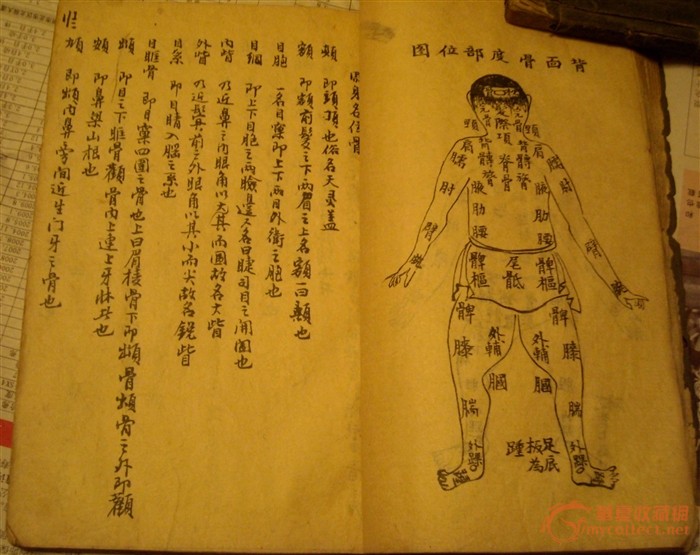 背面骨度部位图
頸 頸
肩 肩
脊骨
腋 腋
肋 肋
腰 腰
肘
臂 臂
髀樞 尾骶 髀樞
髀 髀
膝 外輔 外輔 膝
膕 膕
腨 腨
外踝 外踝
踵 足底板為
周身名位骨
即頭頂也俗名天灵盖
額 即額前髮之下两眉之上名額一曰顙也
目胞 一名目窠即上下两目外衛之胞也
目綱 即上下目胞之两瞼邊又名曰睫司目之開闔也
內眥 乃近鼻之內眼角以其大而圓故名大眥
外眥 乃近鬓前之外眼角以其小而尖故名銳眥
目系 即目睛入腦之系也
目眶骨 即目窠四圍之骨也上曰眉棱骨下即䪼骨䪼骨之外即顴
䪼 即目之下眶骨顴骨內上連上牙牀也
頞 即鼻梁山根也
即頞內鼻旁间近生门牙之骨也
mycollect.net